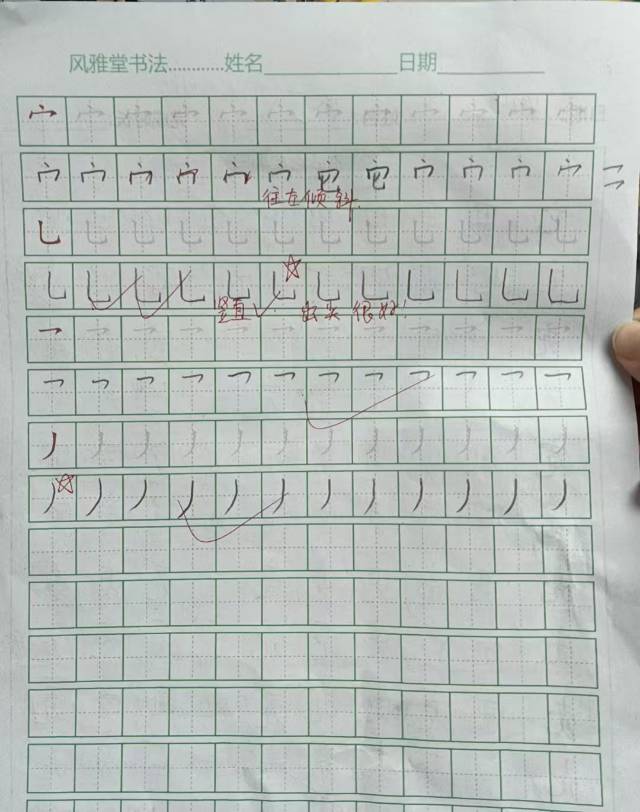 风雅堂书法............姓名____________日期__________
宀 宀 宀 宀 宀 宀 宀 宀 宀 宀 宀 宀
宀 宀 宀 宀 宀 宀 它 它 宀 宀 宀 宀
往左倾斜
乚 乚 乚 乚 乚 乚 乚 乚 乚 乚 乚 乚
乚 乚 乚 乚 乚 乚 乚 乚 乚 乚 乚 乚
竖直 出头 很好！
乛 乛 乛 乛 乛 乛 乛 乛 乛 乛 乛 乛
乛 乛 乛 乛 乛 乛 乛 乛 乛 乛 乛 乛
丿 丿 丿 丿 丿 丿 丿 丿 丿 丿 丿 丿
丿 丿 丿 丿 丿 丿 丿 丿 丿 丿 丿 丿